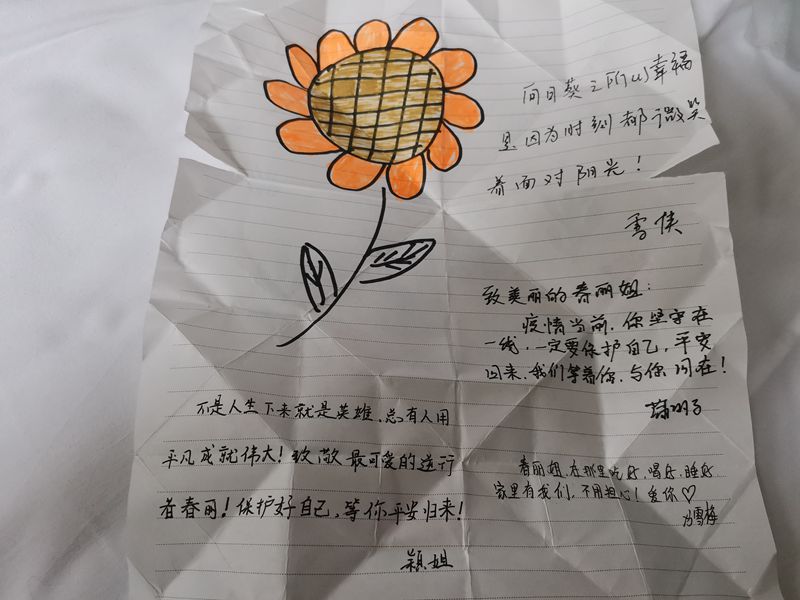 向日葵之所以幸福
是因为时刻都微笑
着面对阳光！
雪侠
致美丽的春丽姐：
疫情当前，你坚守在
一线，一定要保护自己，平安
回来，我们等着你，与你同在！
不是人生下来就是英雄，总有人用
平凡成就伟大！致敬最可爱的逆行
者春丽！保护好自己，等你平安归来！
颖姐
春丽姐，在那里吃好，喝好，睡好
家里有我们，不用担心！爱你♡
雪梅